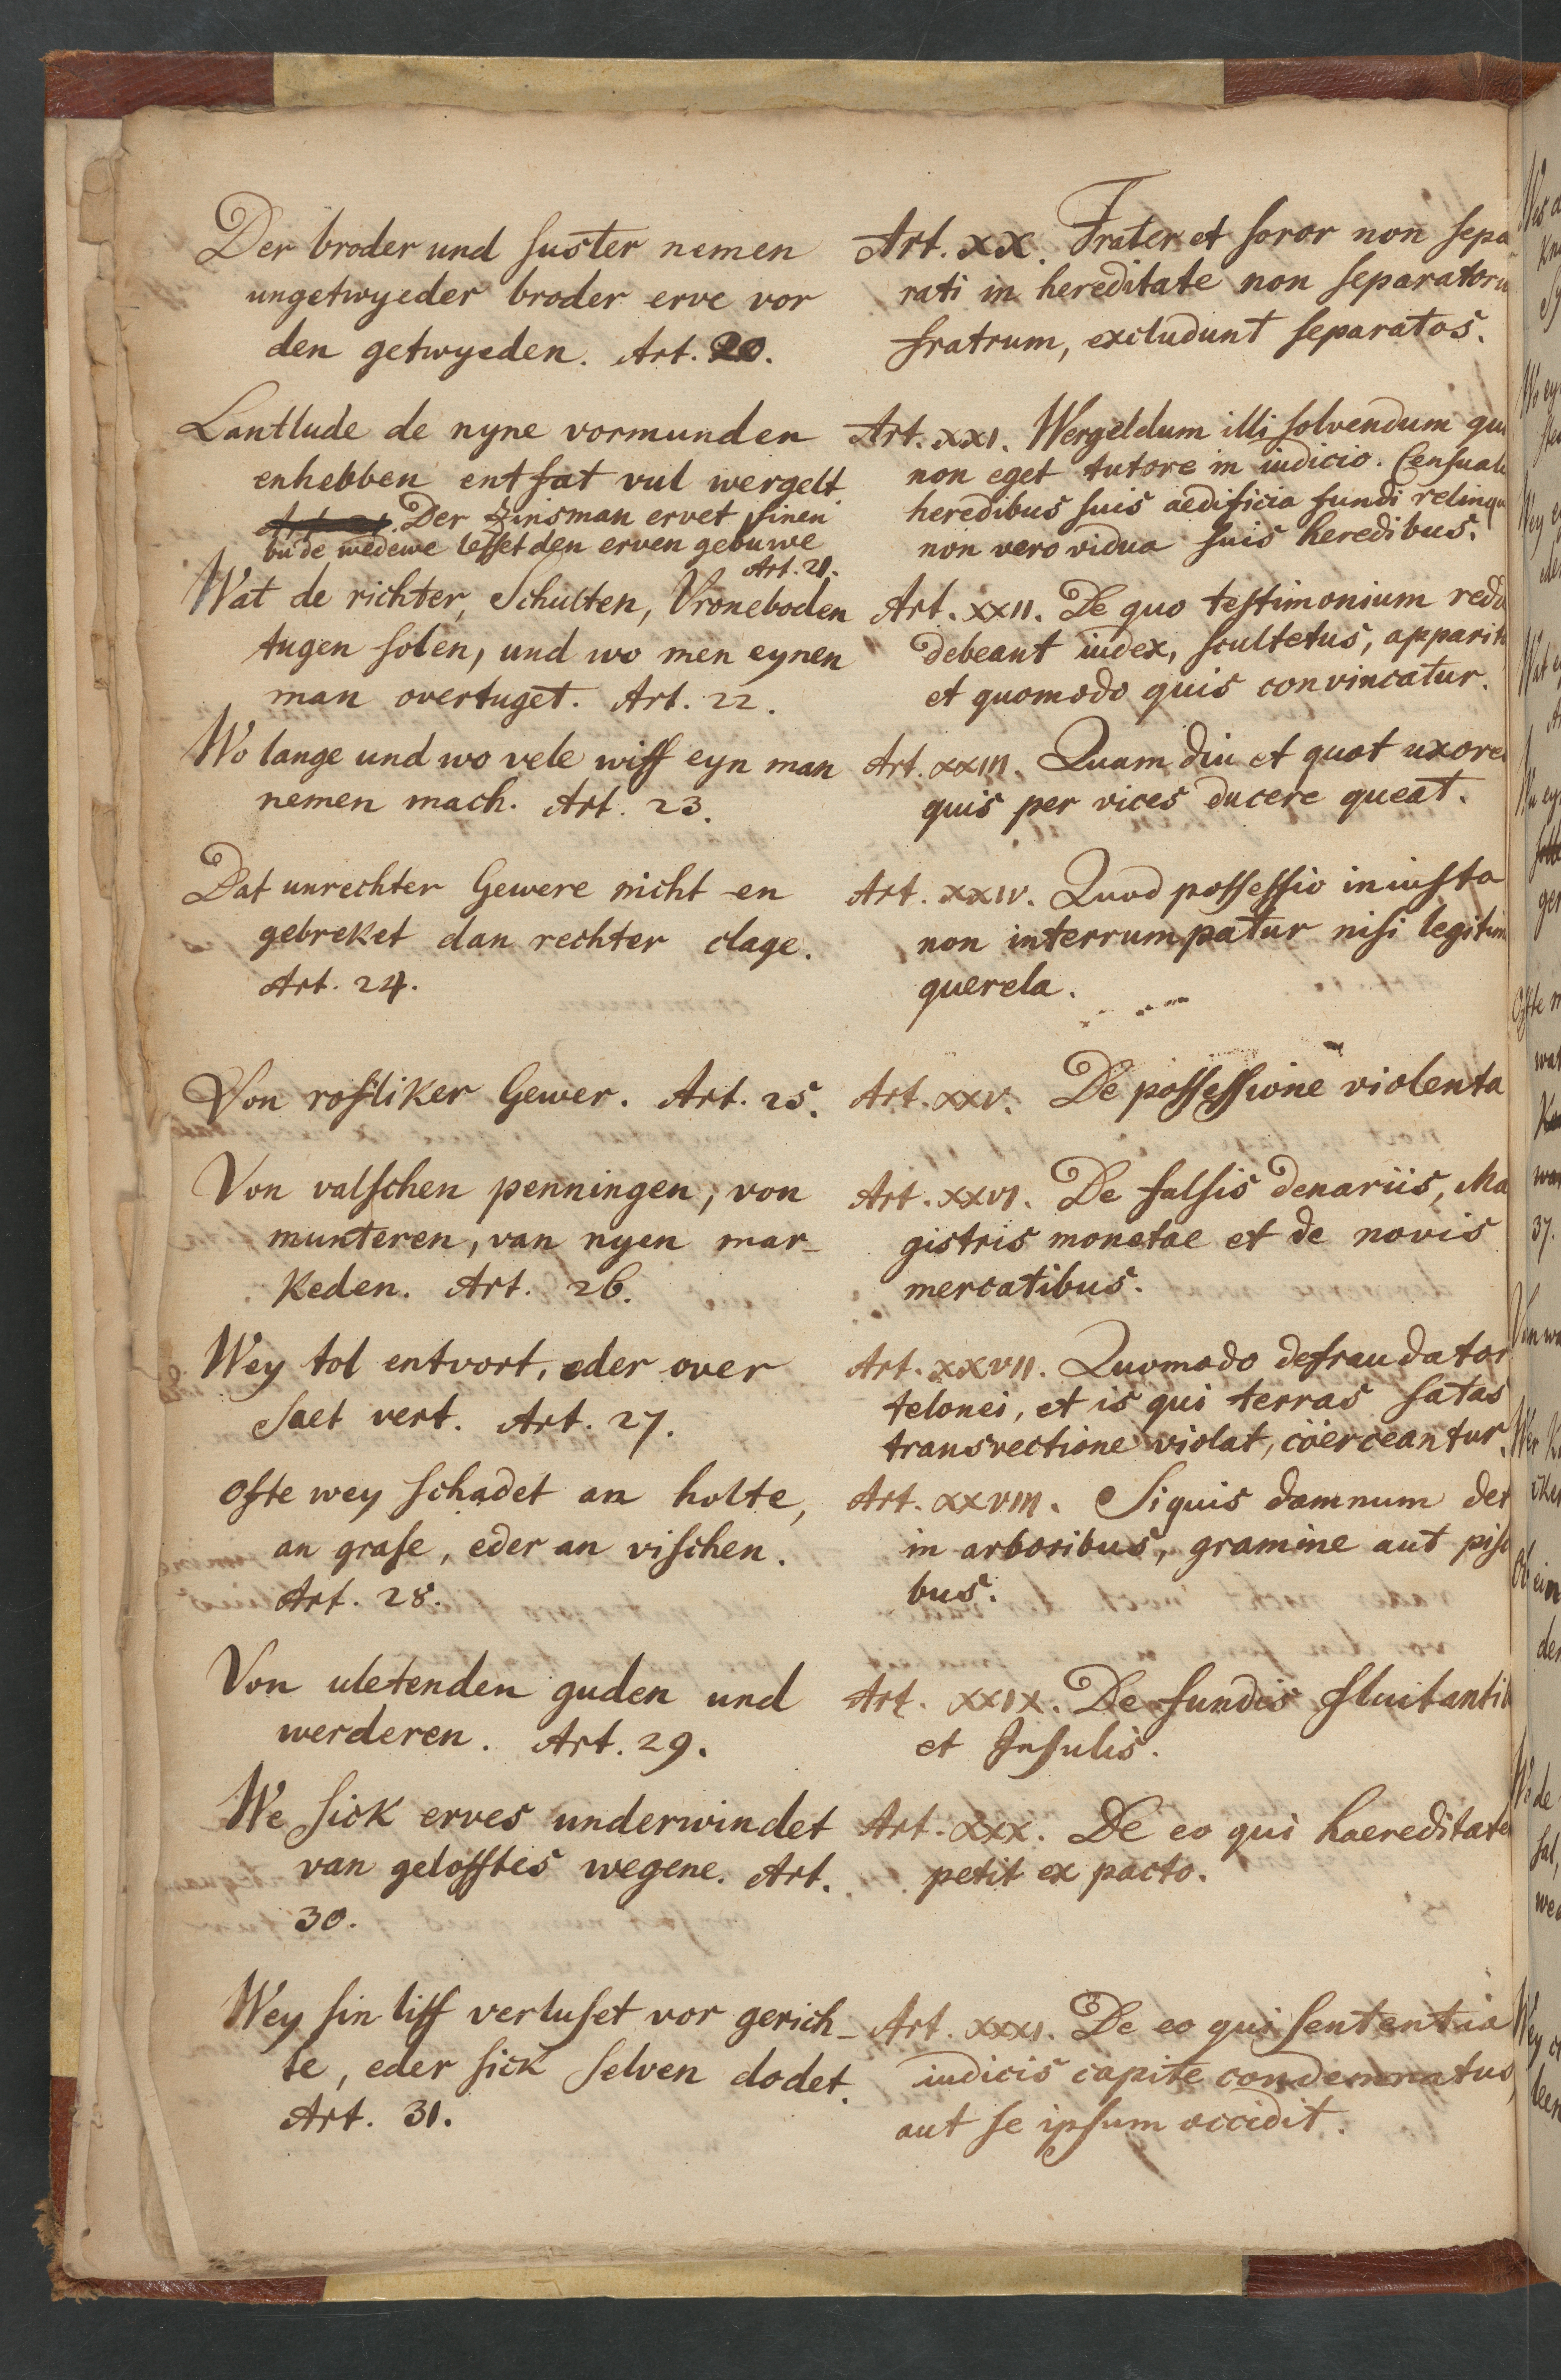 Der broder und suster nemen
ungetwyeder broder erve vor
den getwyeden. Art. 20.
Lantlude de nyne vormunden
enhebben entfat vul wergelt
Der zinsman ervet sinen
bu de wedewe lesset den erven gebuwe
Art. 21.
Wat de richter, Schulten, Vroneboden
tugen solen, und wo men eynen
man overtuget. Art. 22.
Wo lange und wo vele wiff eyn man
nemen mach. Art. 23.
Dat unrechter Gewere nicht en
gebreket dan rechter clage.
Art. 24.
Von rofliker Gewer. Art. 25.
Von valschen penningen, von
munteren, van nyen mar-
keden. Art. 26.
Wey tol entvort, eder over
Saet vert. Art. 27.
Ofte wey schadet an holte,
an grase, eder an vischen.
Art. 28.
Von uletenden guden und
werderen. Art. 29.
We sick erves underwindet
van gelofftes wegene. Art.
30.
Wey sin liff verluset vor gerich-
te, eder sick selven dodet.
Art. 31.
Art. XX. Frater et soror non sepa
rati in hereditate non separatoru
fratrum, excludunt separatos.
Art. XXI. Wergeldum illi solvendum qui
non eget tutore in iudicio. Censual
heredibus suis aedificia fundi relinqu
non vero vidua suis heredibus.
Art. XXII. De quo testimonium redd
debeant iudex, scultetus, apparit
et quomodo quis convincatur.
Art. XXIII. Quam diu et quot uxore
quis per vices ducere queat.
Art. XXIV. Quod possessio iniusta
non interrumpatur nisi legitim
querela.
Art. XXV. De possessione violenta
Art. XXVI. De falsis denariis, Ma
gistris monetae et de novis
mercatibus.
Art. XXVII. Quomodo defraudator
telonei, et is qui terras satas
transvectione violat, cöerceantur.
Art. XXVIII. Siquis damnum det
in arboribus, gramine aut pisc
bus.
Art. XXIX. De fundis fluitantib
et Insulis.
Art. XXX. De eo qui haereditate
petit ex pacto.
Art. XXXI. De eo qui sententia
iudicis capite condemnatus,
aut se ipsum occidit.